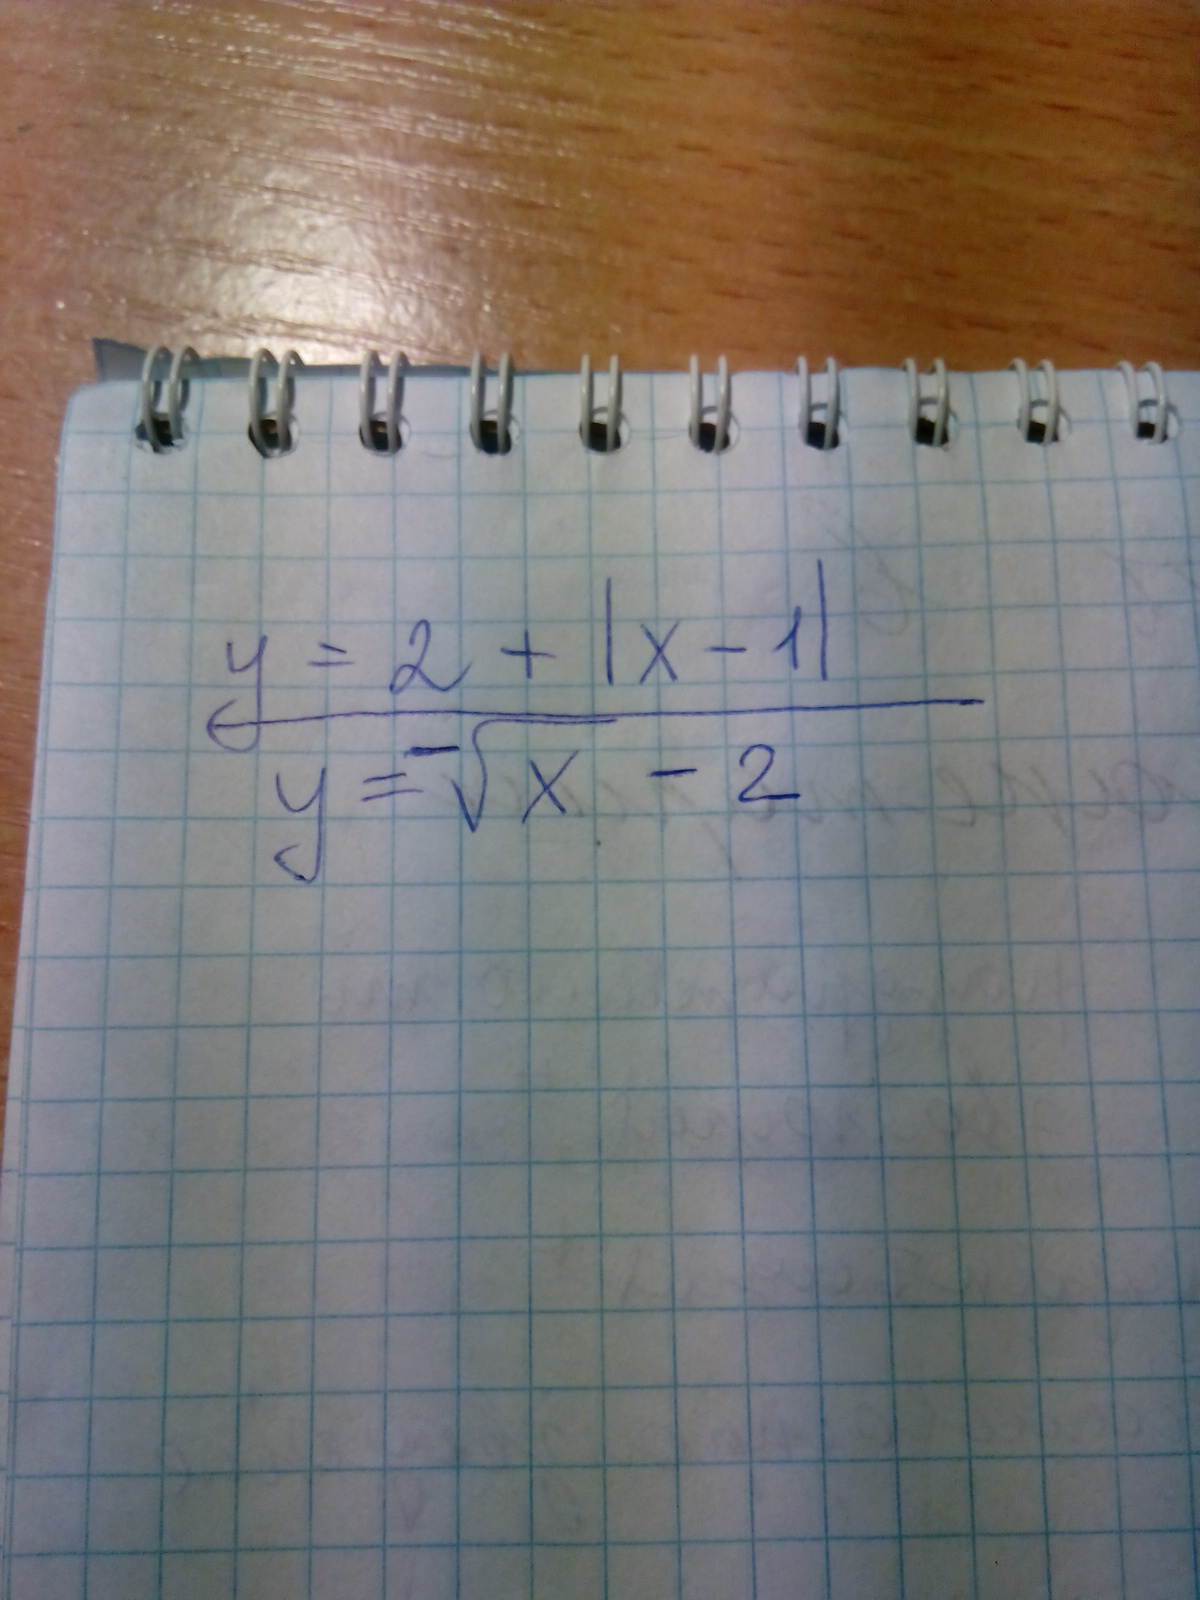 y = 2 + |x - 1|
y = -√x - 2